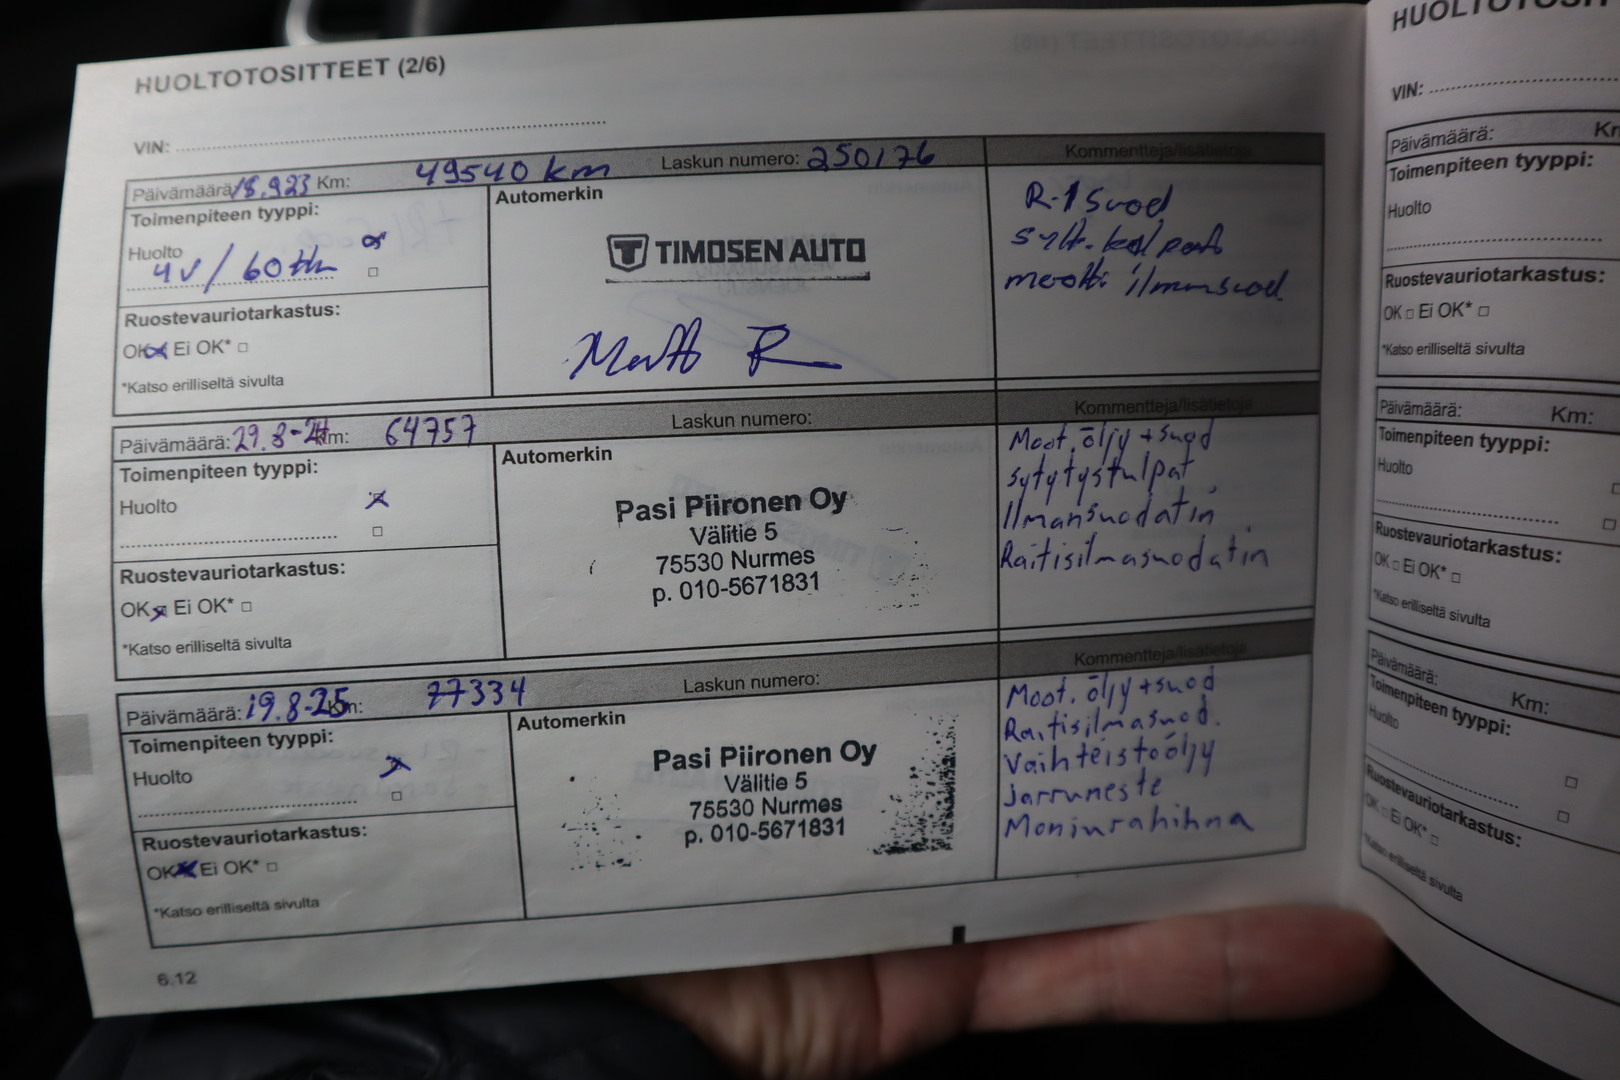 HUOLTOTOSITTEET (2/6)
VIN:
Päivämäärä: 18.923 Km: 49540 km Laskun numero: 250176 Kommentteja/lisätietoja
Toimenpiteen tyyppi:
Huolto
4v / 60tkm
Ruostevauriotarkastus:
OK Ei OK*
*Katso erilliseltä sivulta
Automerkin
TIMOSEN AUTO
R-1 Suod
meno ilmansuod.
Päivämäärä: 29.8-24 Km: 64757 Laskun numero: Kommentteja/lisätietoja
Toimenpiteen tyyppi:
Huolto
Ruostevauriotarkastus:
OK Ei OK*
*Katso erilliseltä sivulta
Automerkin
Pasi Piironen Oy
Välitie 5
75530 Nurmes
p. 010-5671831
Moot. öljy + suod
sytytystulpat
Ilmansuodatin
Raitisilmasuodatin
Päivämäärä: 19.8-25 Km: 77334 Laskun numero: Kommentteja/lisätietoja
Toimenpiteen tyyppi:
Huolto
Ruostevauriotarkastus:
OK Ei OK*
*Katso erilliseltä sivulta
Automerkin
Pasi Piironen Oy
Välitie 5
75530 Nurmes
p. 010-5671831
Moot. öljy + suod
Raitisilmasuod.
Vaihteistoöljy
Jarruneste
Moniurahihna
6.12
VIN:
Päivämäärä:
Toimenpiteen tyyppi:
Huolto
Ruostevauriotarkastus:
OK Ei OK*
*Katso erilliseltä sivulta
Päivämäärä: Km:
Toimenpiteen tyyppi:
Huolto
Ruostevauriotarkastus:
OK Ei OK*
*Katso erilliseltä sivulta
Päivämäärä: Km:
Toimenpiteen tyyppi:
Huolto
Ruostevauriotarkastus:
OK Ei OK*
*Katso erilliseltä sivulta